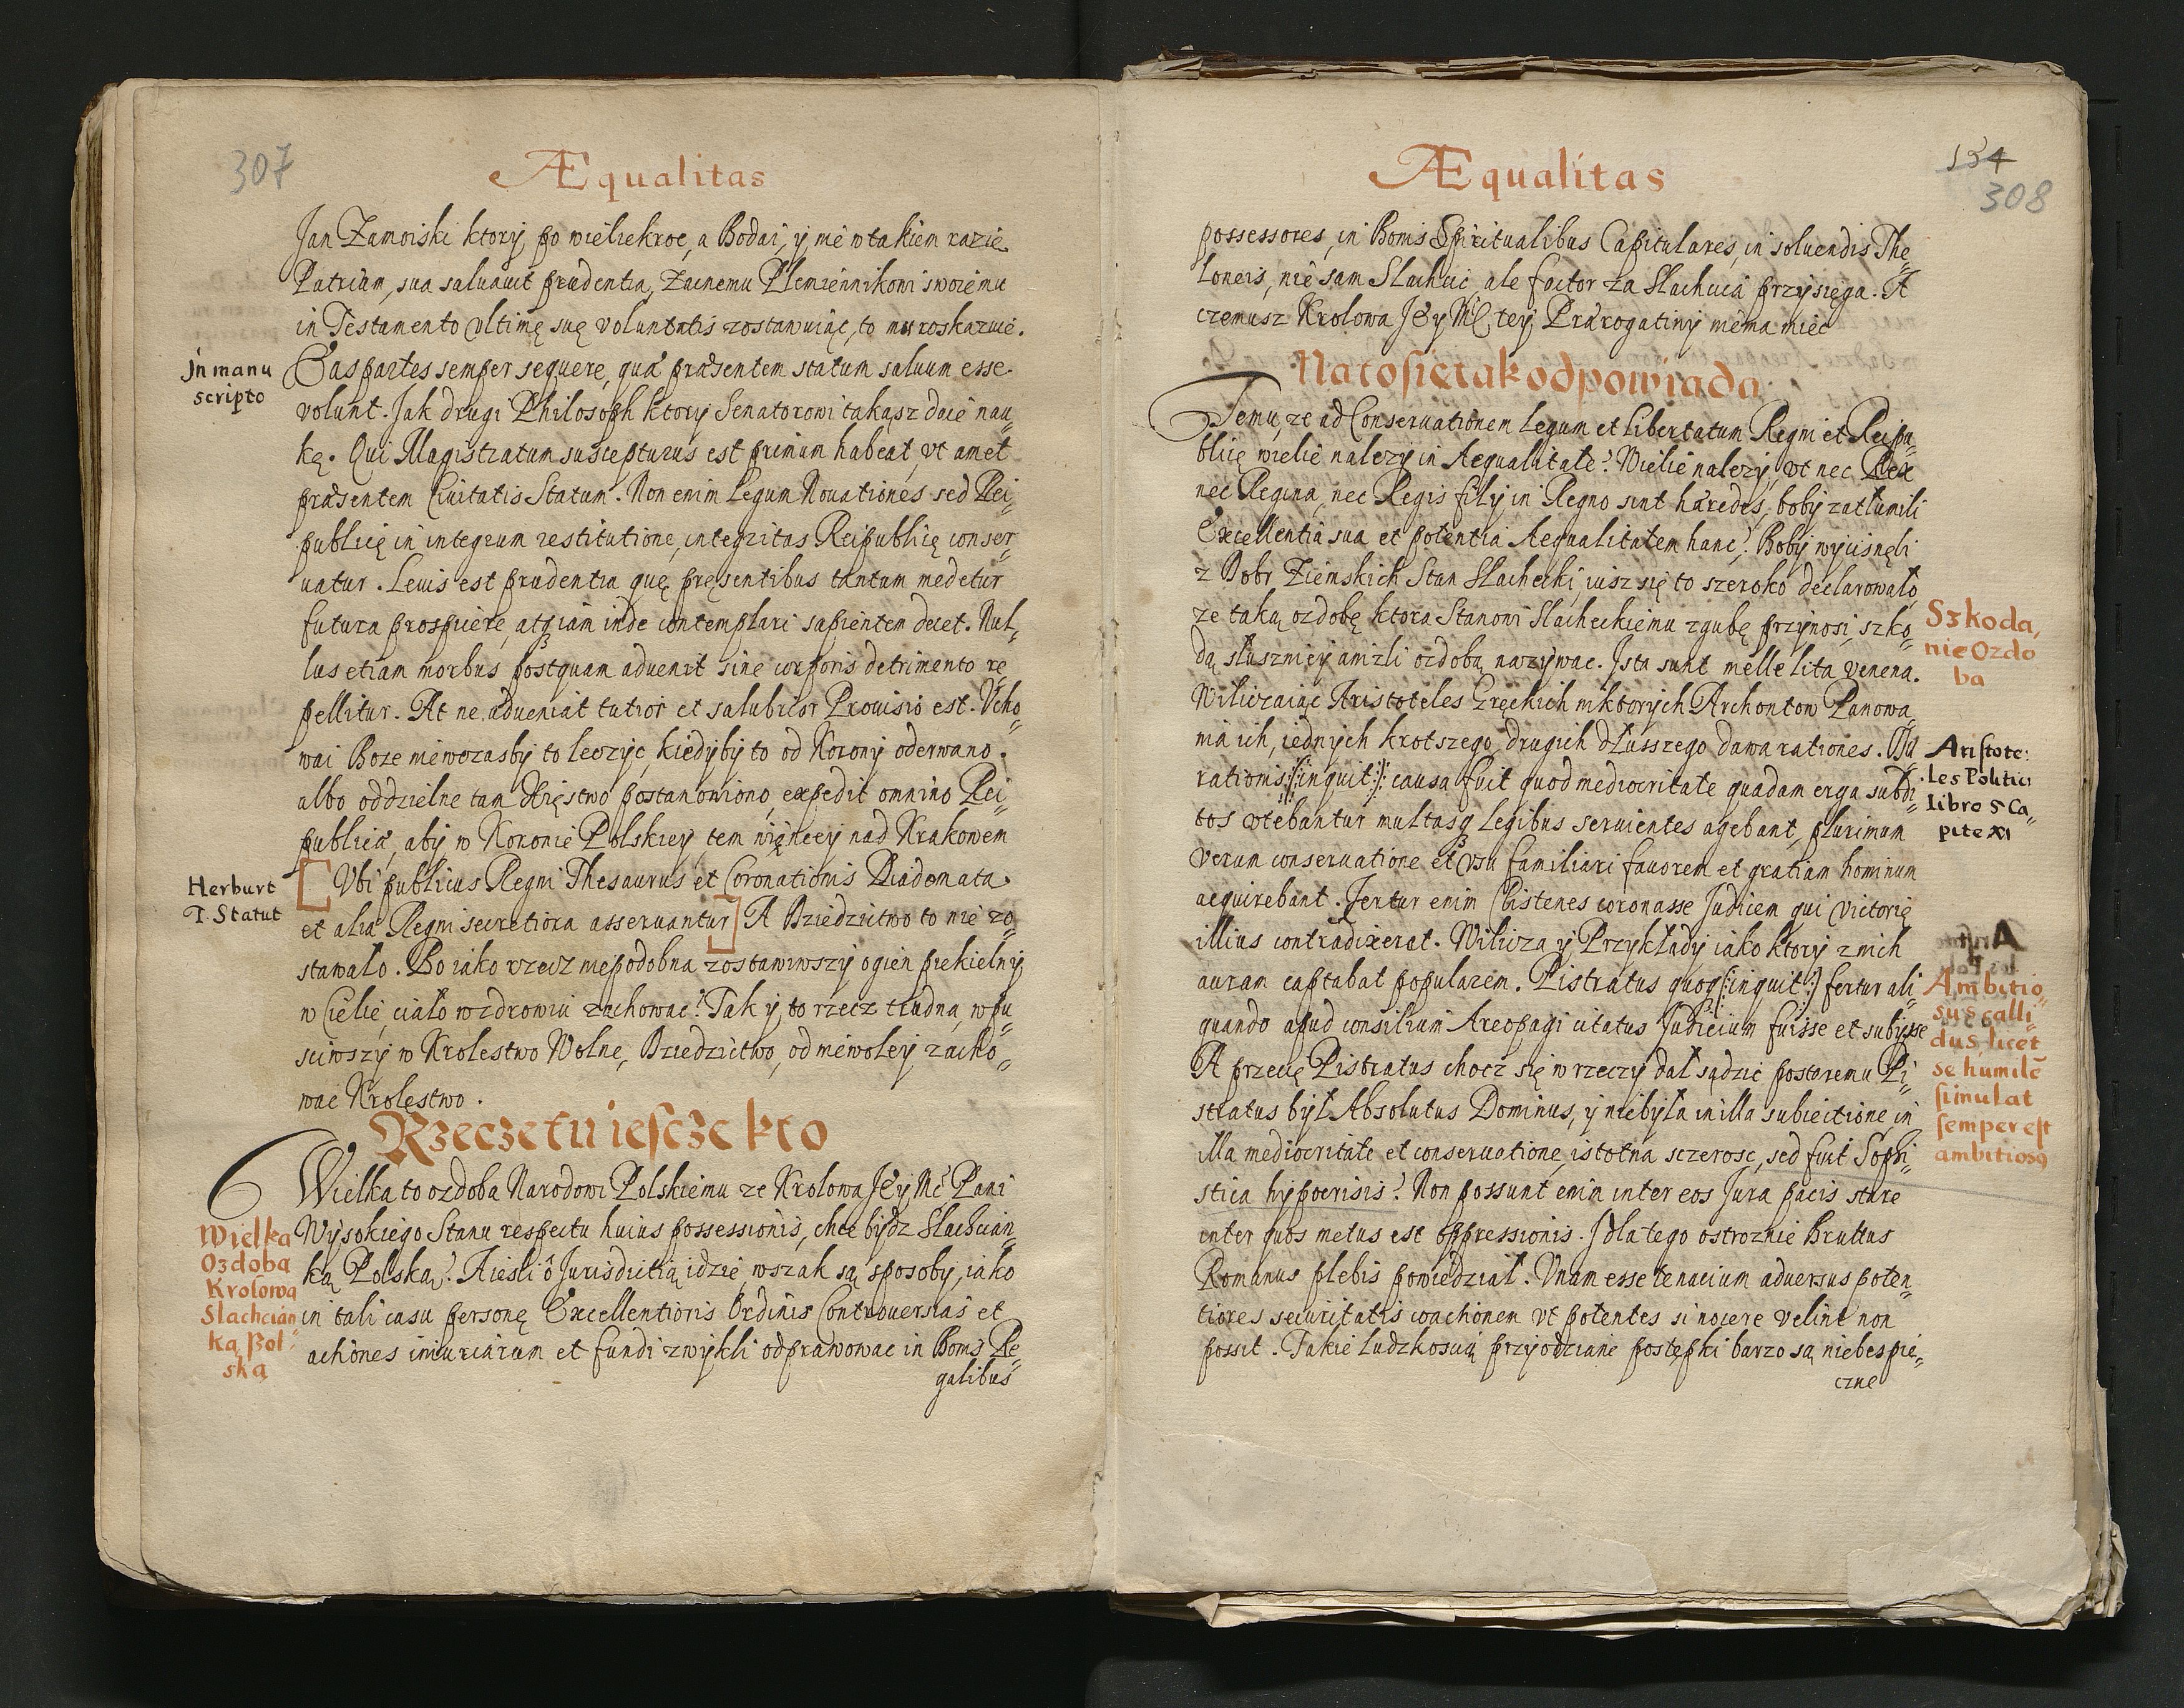 307
Æqualitas
Jan Zamoiski ktory po wieliekroc, a Bodai, y nie w takiem razie
Patriam, sua saluauit prudentia, Zacnemu Plemiennikowi swoiemu
in Testamento vltimę suę voluntatis zostawuiąc, to mu roskazuie.
Jn manu
scripto
Eas partes semper sequere, quæ præsentem statum saluum esse
volunt. Jak drugi Philosoph ktory Senatorowi takąsz daie nau„
kę. Qui Magistratum suscepturus est primum habeat, vt amet
præsentem Ciuitatis Statum. Non enim Legum Nouationes sed Rei„
publicę in integrum restitutione, integritas Reipublicę conser„
uatur. Leuis est prudentia quę pręsentibus tantum medetur
futura prospicere, atq iam inde contemplari sapientem decet. Nul„
lus etiam morbus postquam aduenit sine corporis detrimento re„
pellitur. At ne adueniat tutior et salubrior Prouisio est. Vcho„
wai Boze niewczasby to leczyc, kiedyby to od Korony oderwano.
albo oddzielne tam Xięstwo postanowiono, expedit omnino Rei„
publicæ, aby w Koronie Polskiey tem więncey nad Krakowem
Herburt
T. Statut
[Vbi publicus Regni Thesaurus et Coronationis Diadomata
et alia Regni secretiora asseruantur] A Dziedzictwo to nie zo„
stawało. Bo iako rzecz niepodobna zostawiwszy ogien piekielny
w Ciele, ciało w zdrowiu zachowac? Tak y to rzecz trudna, wpu„
sciwszy w Krolestwo Wolne, Dziedzictwo, od niewoley zacho„
wac Krolestwo.
Rzecze tu iescze kto
Wielka to ozdoba Narodowi Polskiemu ze Krolowa Jey Mc Pani
Wielka
Ozdoba
Krolowa
Slachcian
ka Pol„
ska
Wysokiego Stanu respectu huius possessionis, chce bydz Slachcian„
ką Polską? A iesli o Jurisdictią idzie, wszak są sposoby, iako
in tali casu personę Excellentioris Ordinis Controuersias et
actiones iniuriarum et fundi zwykli odprawowac in Bonis Re„
galibus
154
308
Æqualitas
possessores, in Bonis Spiritualibus Capitulares, in soluendis The„
loneis, nie sam Slachcic, ale factor za Slachcica przysięga. A
czemusz Krolowa Jey Mc tey Prærogatiwy niema miec
Na to się tak odpowiada
Temu, ze ad Conseruationem Legum et Libertatum Regni et Reipu„
blicę wielie nalezy in Aequalitate? Wielie nalezy, vt nec Rex
nec Regina, nec Regis filij in Regno sint hæredes, boby zatłumili
Excellentia sua et potentia Aequalitatem hanc? Boby wycisnęli
z Dobr Ziemskich Stan Slachecki, iusz się to szeroko declarowało,
ze taką ozdobę ktora Stanowi Slacheckiemu zgubę przynosi, szko„
dą słuszniey anizli ozdobą nazywac. Ista sunt melle lita venena.
Szkoda,
nie Ozdo
ba
Wiliczaiąc Aristoteles Greckich niktorych Archontow Panowa„
nia ich, iednych krotszego, drugich dłusszego dawa rationes.
rationis (: inquit :) causa fuit quod mediocritate quadam erga subdi„
tos vtebantur multasq Legibus seruientes agebant, plurimum
Aristote:
les Politic:
libro 5 Ca„
pite XI
verum conseruatione et vsu familiari fauorem et gratiam hominum
acquirebant. Fertur enim Clistenes coronasse Judicem qui Victorię
illius contradixerat. Wilicza y Przykłady iako ktory z nich
auram captabat popularem. Pistratus quoq (: inquit :) fertur ali„
quando apud consilium Areopagi citatus Judicium fuisse et subijsse
A przecię Pistratus chocz się w rzeczy dał sądzic postaremu Pi„
stratus był Absolutus Dominus, y niebyła in illa subiectione, in
illa mediocritate et conseruatione, istotna sczerosc, sed fuit Sophi„
stica hypocrisis? Non possunt enim inter eos Jura pacis stare
inter quos metus est oppressionis. J dla tego ostroznie Bruttus
Romanus plebis powiedział. Vnam esse tenacium aduersus poten„
tiores securitatis coachonem vt potentes si nocere velint non
possit. Takie ludzkoscią przyodziane postępki barzo są niebespie„
czne
A
Ambitio„
sus calli„
dus, licet
se humilē
simulat
semper est
ambitiosq